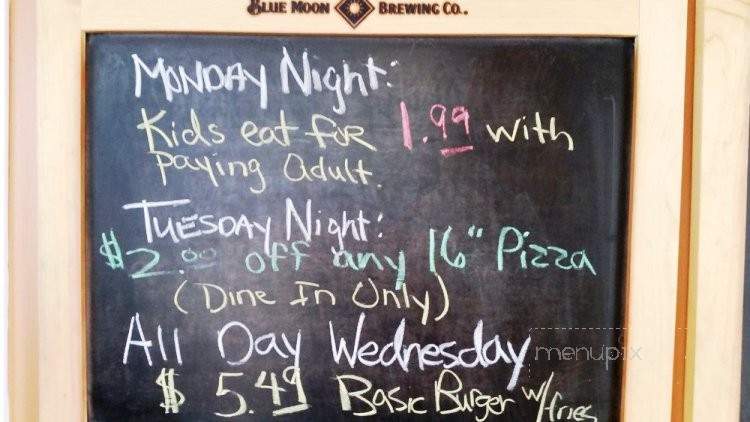 BLUE MOON BREWING CO..
MONDAY Night:
Kids eat for 1.99 with
paying adult.
TUESDAY Night:
$2.00 off any 16" Pizza
(Dine In Only)
All Day Wednesday
$ 5.49 Basic Burger w/fries
menupix